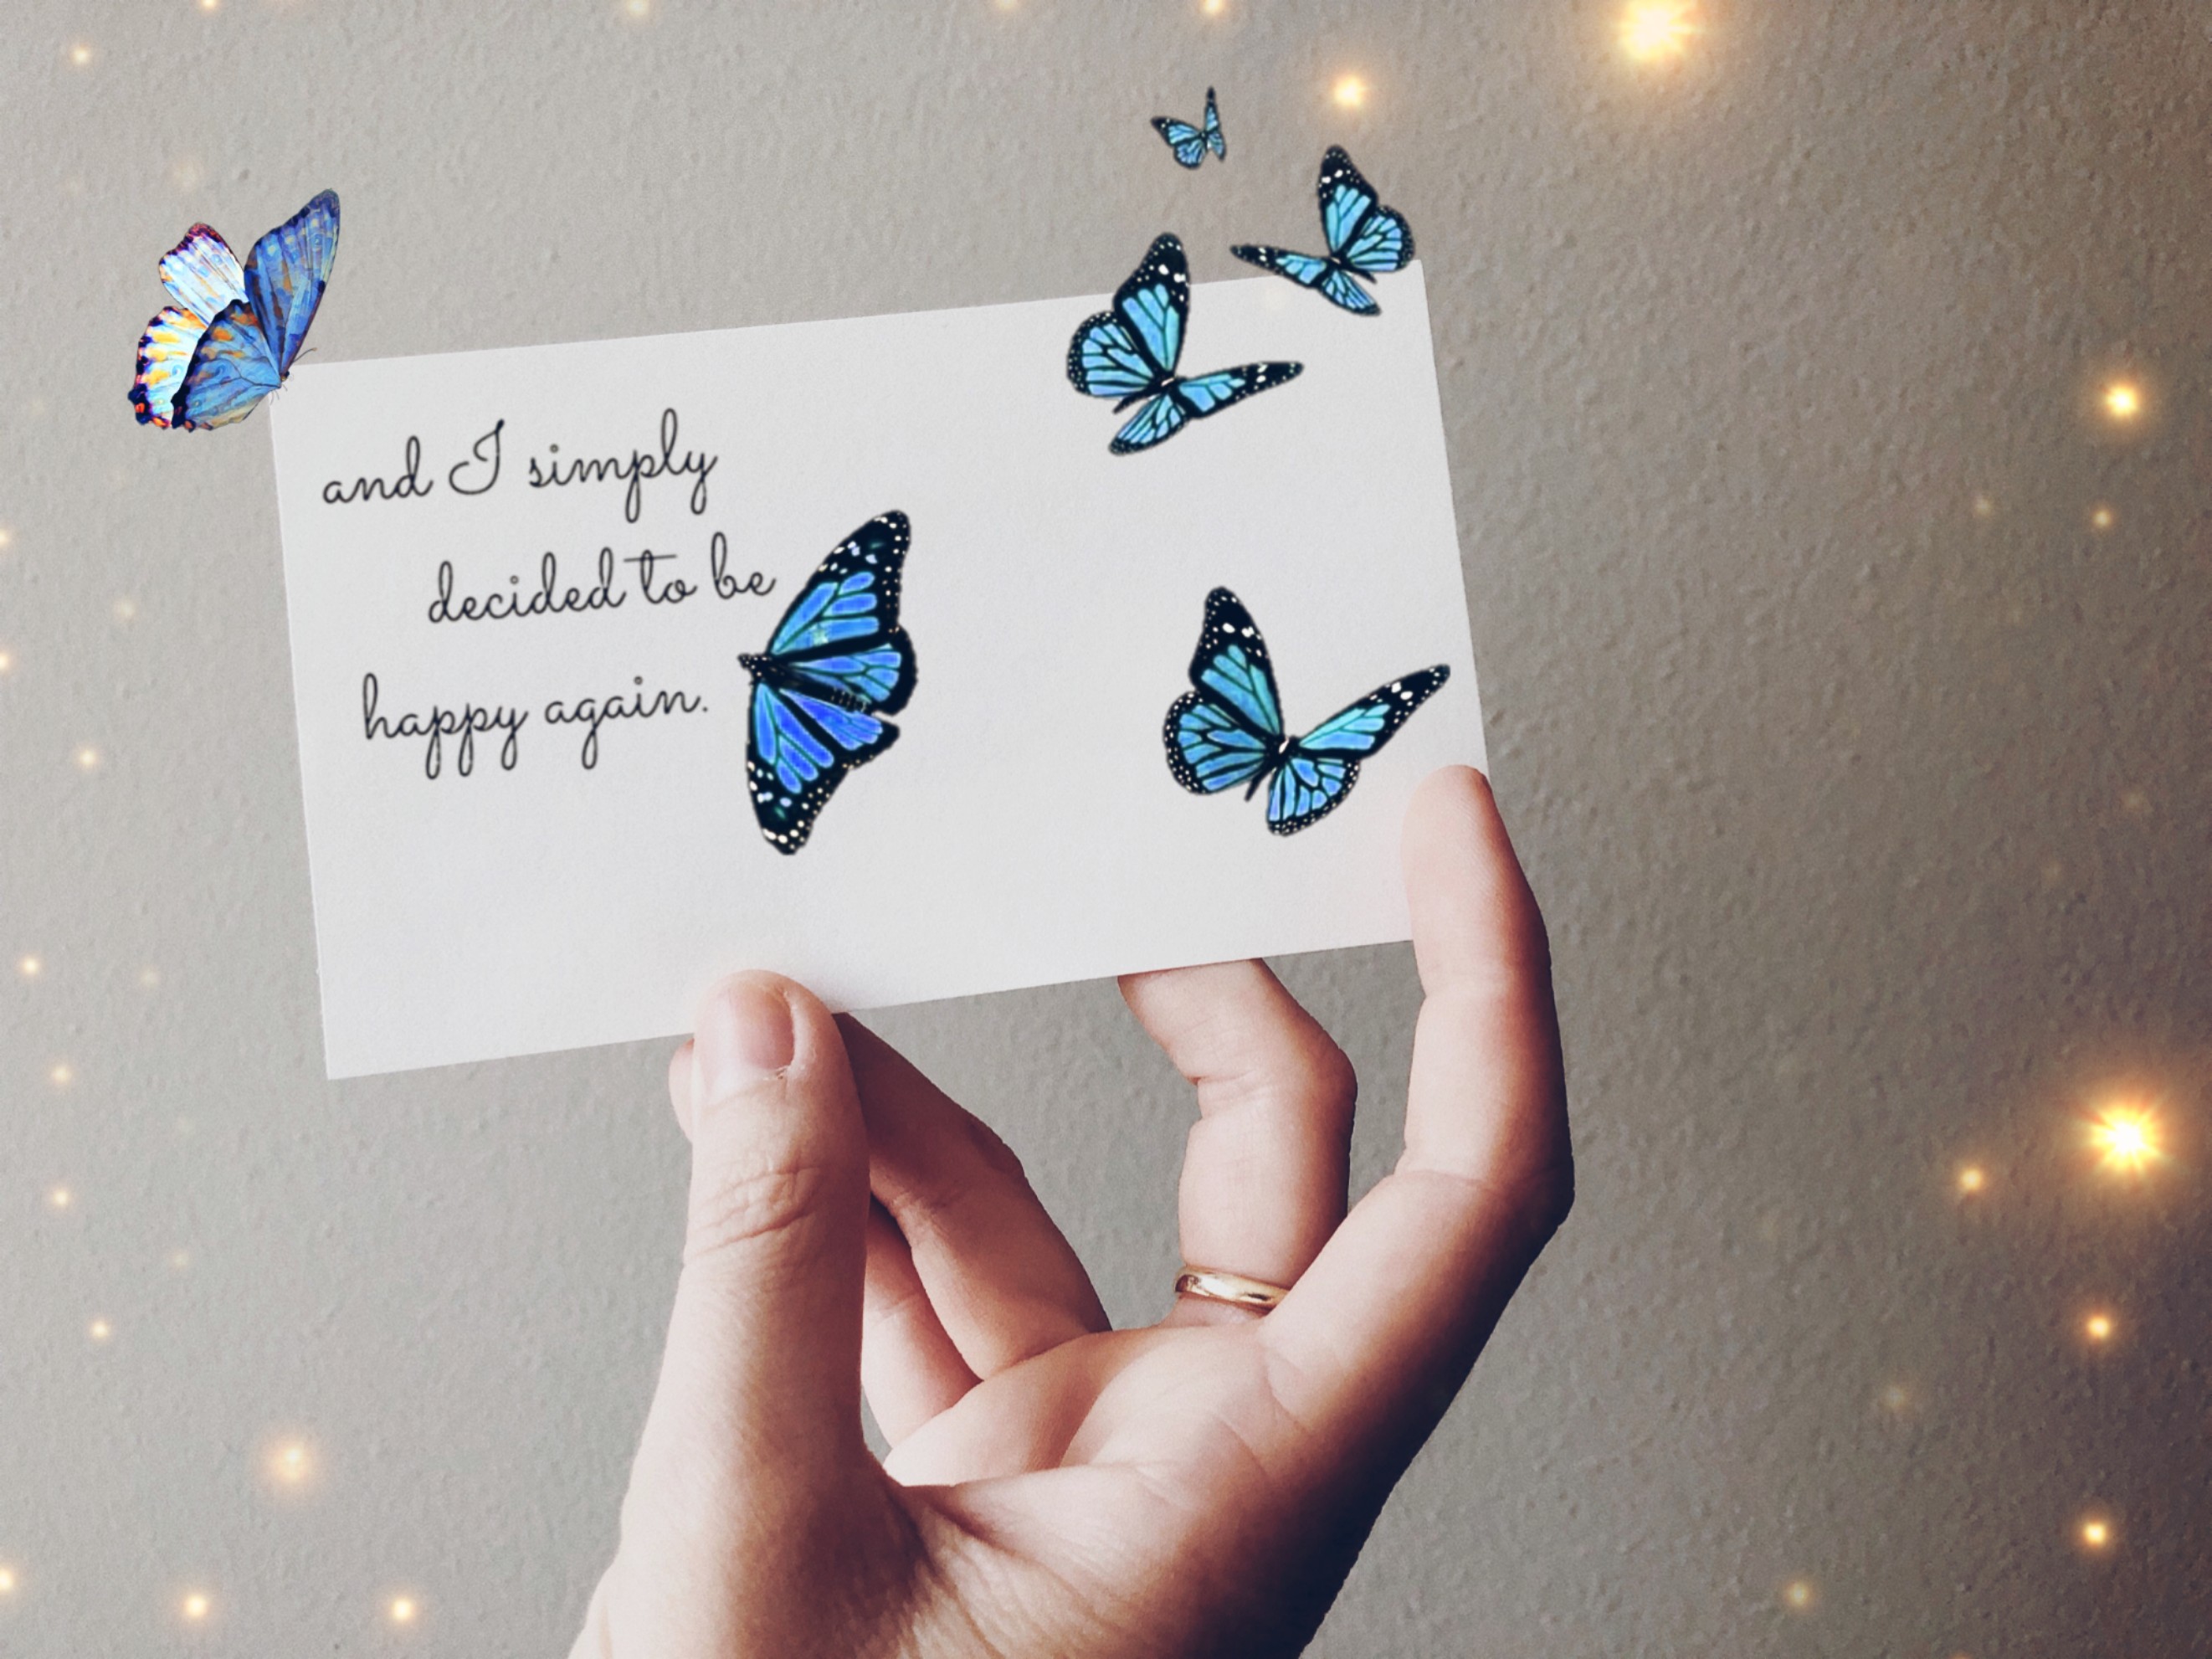 and I simply
decided to be
happy again.